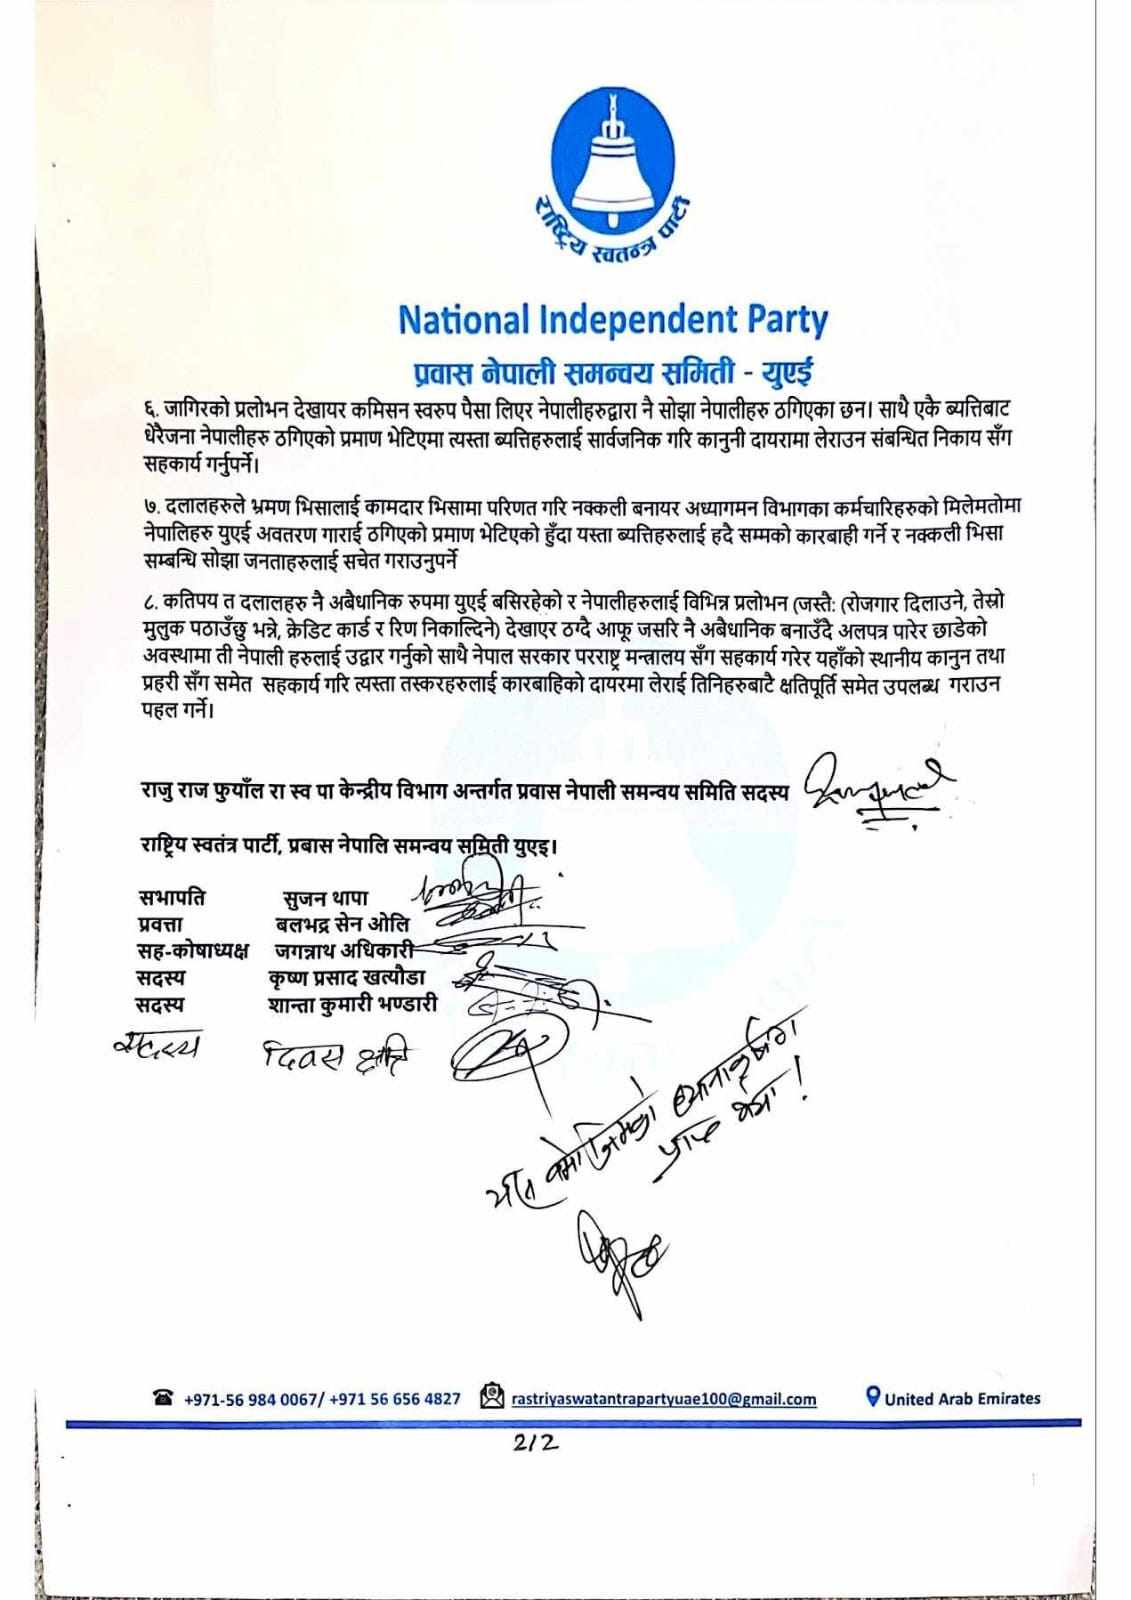 राष्ट्रिय स्वतन्त्र पार्टी
National Independent Party
प्रवास नेपाली समन्वय समिती - युएई
६. जागिरको प्रलोभन देखायर कमिसन स्वरुप पैसा लिएर नेपालीहरुद्वारा नै सोझा नेपालीहरु ठगिएका छन। साथै एकै ब्यत्तिबाट
धेरैजना नेपालीहरु ठगिएको प्रमाण भेटिएमा त्यस्ता ब्यत्तिहरुलाई सार्वजनिक गरि कानुनी दायरामा लेराउन संबन्धित निकाय सँग
सहकार्य गर्नुपर्ने।
७. दलालहरुले भ्रमण भिसालाई कामदार भिसामा परिणत गरि नक्कली बनायर अध्यागमन विभागका कर्मचारिहरुको मिलेमतोमा
नेपालिहरु युएई अवतरण गाराई ठगिएको प्रमाण भेटिएको हुँदा यस्ता ब्यत्तिहरुलाई हदै सम्मको कारबाही गर्ने र नक्कली भिसा
सम्बन्धि सोझा जनताहरुलाई सचेत गराउनुपर्ने
८. कतिपय त दलालहरु नै अबैधानिक रुपमा युएई बसिरहेको र नेपालीहरुलाई विभिन्न प्रलोभन (जस्तै: (रोजगार दिलाउने, तेस्रो
मुलुक पठाउँछु भन्ने, क्रेडिट कार्ड र रिण निकाल्दिने) देखाएर ठग्दै आफू जसरि नै अबैधानिक बनाउँदै अलपत्र पारेर छाडेको
अवस्थामा ती नेपाली हरुलाई उद्वार गर्नुको साथै नेपाल सरकार परराष्ट्र मन्त्रालय सँग सहकार्य गरेर यहाँको स्थानीय कानुन तथा
प्रहरी सँग समेत सहकार्य गरि त्यस्ता तस्करहरुलाई कारबाहिको दायरमा लेराई तिनिहरुबाटै क्षतिपूर्ति समेत उपलब्ध गराउन
पहल गर्ने।
राजु राज फुयाँल रा स्व पा केन्द्रीय विभाग अन्तर्गत प्रवास नेपाली समन्वय समिति सदस्य
राष्ट्रिय स्वतंत्र पार्टी, प्रबास नेपालि समन्वय समिती युएइ।
सभापति सुजन थापा
प्रवत्ता बलभद्र सेन ओलि
सह-कोषाध्यक्ष जगन्नाथ अधिकारी
सदस्य कृष्ण प्रसाद खत्यौडा
सदस्य शान्ता कुमारी भण्डारी
सदस्य दिवस क्षेत्रि
बमोजिमको ध्यानाकर्षण
प्राप्त भयो !
+971-56 984 0067/ +971 56 656 4827 rastriyaswatantrapartyuae100@gmail.com United Arab Emirates
2/2